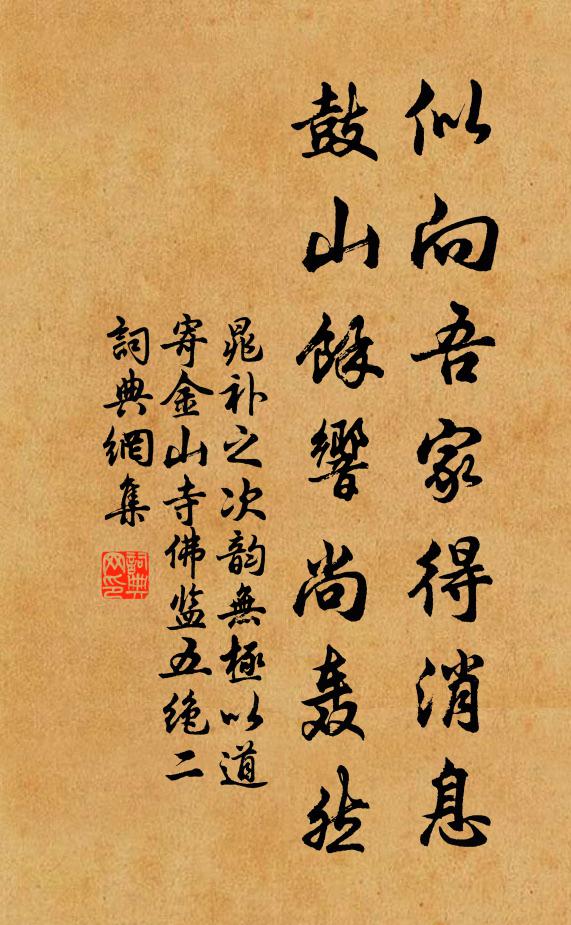 似向吾家得消息
鼓山餘響尚轰然
晁补之次韵無極以道
寄金山寺佛监五绝二
詞典網集
詞典
网印